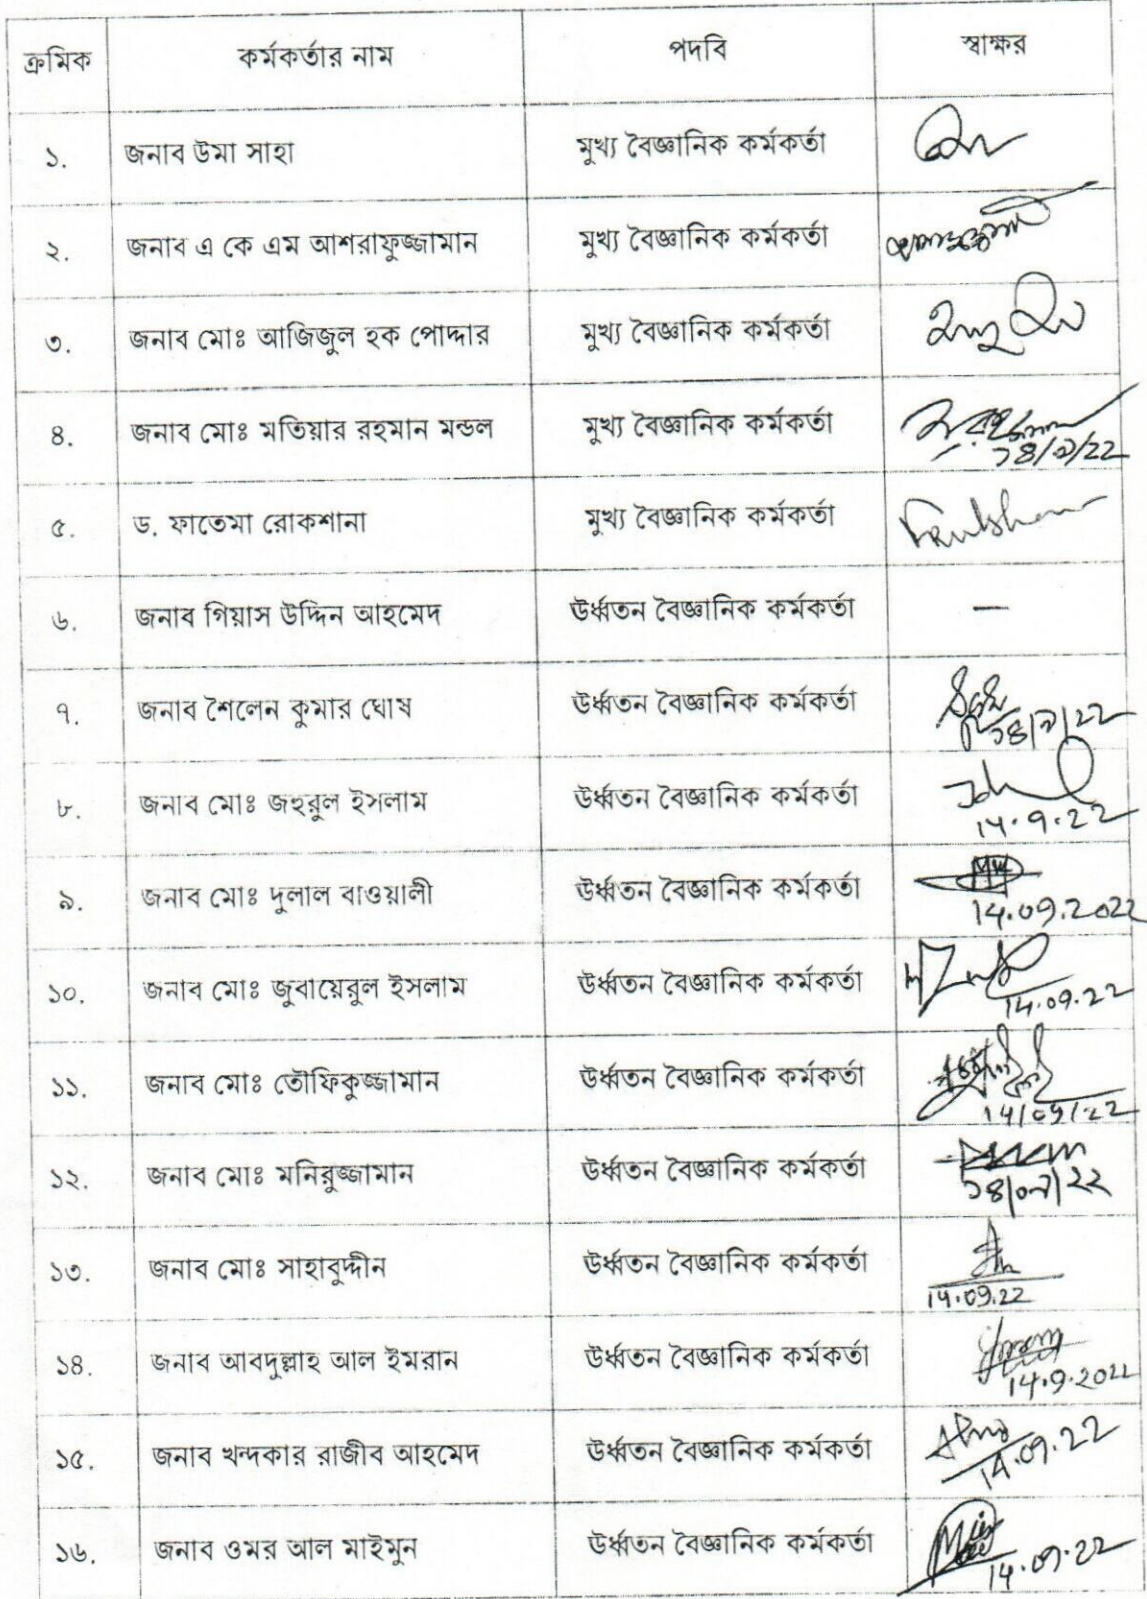 ক্রমিক কর্মকর্তার নাম পদবি স্বাক্ষর
১. জনাব উমা সাহা মুখ্য বৈজ্ঞানিক কর্মকর্তা
২. জনাব এ কে এম আশরাফুজ্জামান মুখ্য বৈজ্ঞানিক কর্মকর্তা
৩. জনাব মোঃ আজিজুল হক পোদ্দার মুখ্য বৈজ্ঞানিক কর্মকর্তা
৪. জনাব মোঃ মতিয়ার রহমান মন্ডল মুখ্য বৈজ্ঞানিক কর্মকর্তা
১৪/৯/22
৫. ড. ফাতেমা রোকশানা মুখ্য বৈজ্ঞানিক কর্মকর্তা
৬. জনাব গিয়াস উদ্দিন আহমেদ ঊর্ধ্বতন বৈজ্ঞানিক কর্মকর্তা —
৭. জনাব শৈলেন কুমার ঘোষ ঊর্ধ্বতন বৈজ্ঞানিক কর্মকর্তা
১৪/৯/22
৮. জনাব মোঃ জহুরুল ইসলাম ঊর্ধ্বতন বৈজ্ঞানিক কর্মকর্তা
14.9.22
৯. জনাব মোঃ দুলাল বাওয়ালী ঊর্ধ্বতন বৈজ্ঞানিক কর্মকর্তা
14.09.2022
১০. জনাব মোঃ জুবায়েরুল ইসলাম ঊর্ধ্বতন বৈজ্ঞানিক কর্মকর্তা
14.09.22
১১. জনাব মোঃ তৌফিকুজ্জামান ঊর্ধ্বতন বৈজ্ঞানিক কর্মকর্তা
14/09/22
১২. জনাব মোঃ মনিরুজ্জামান ঊর্ধ্বতন বৈজ্ঞানিক কর্মকর্তা
১৪/০৯/২২
১৩. জনাব মোঃ সাহাবুদ্দীন ঊর্ধ্বতন বৈজ্ঞানিক কর্মকর্তা
14.09.22
১৪. জনাব আবদুল্লাহ আল ইমরান ঊর্ধ্বতন বৈজ্ঞানিক কর্মকর্তা
14.9.2022
১৫. জনাব খন্দকার রাজীব আহমেদ ঊর্ধ্বতন বৈজ্ঞানিক কর্মকর্তা
14.09.22
১৬. জনাব ওমর আল মাইমুন ঊর্ধ্বতন বৈজ্ঞানিক কর্মকর্তা
14.09.22